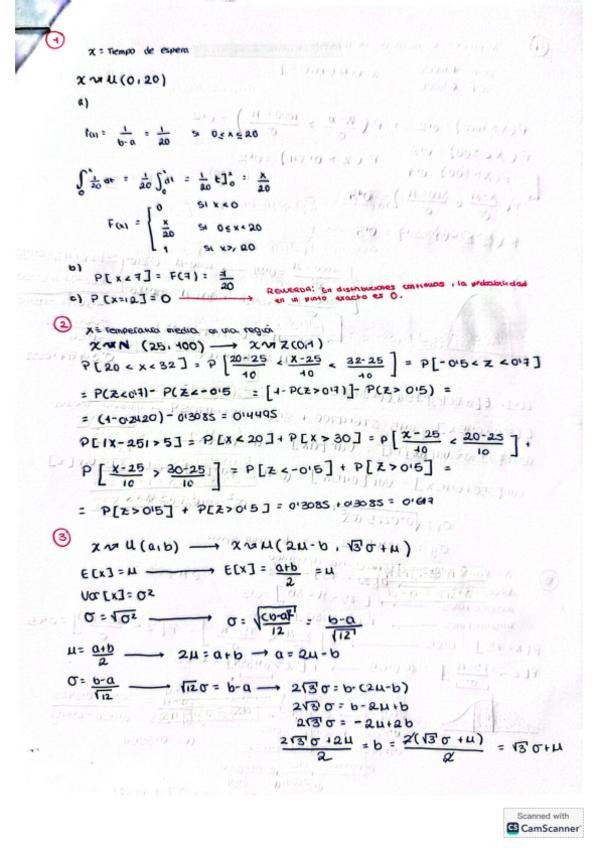 1
X = Tiempo de espera
X ~ U(0,20)
a)
f(x) = 1/(b-a) = 1/20 si 0≤x≤20
∫₀ˣ 1/20 dt = 1/20 ∫₀ˣ dt = 1/20 t]₀ˣ = x/20
F(x) = { 0 si x<0
x/20 si 0≤x<20
1 si x≥20
b)
P[X<7] = F(7) = 7/20
c) P[X=12] = 0 → RECUERDA: En distribuciones continuas, la probabilidad
en un punto exacto es 0.
2 X = Temperatura media en una región
X ~ N (25,100) → X ~ Z(0,1)
P[20 < X < 32] = P[(20-25)/10 < (X-25)/10 < (32-25)/10] = P[-0'5 < Z < 0'7]
= P(Z<0'7) - P(Z<-0'5 = [1-P(Z>0'7)] - P(Z>0'5) =
= (1-0'2420) - 0'3085 = 0'4495
P[|X-25|>5] = P[X<20] + P[X>30] = P[(X-25)/10 < (20-25)/10] +
P[(X-25)/10 > (30-25)/10] = P[Z<-0'5] + P[Z>0'5] =
= P[Z>0'5] + P[Z>0'5] = 0'3085 + 0'3085 = 0'617
3
X ~ U(a,b) → X ~ U(2μ-b, √3σ+μ)
E[X] = μ → E[X] = (a+b)/2 = μ
Var[X] = σ²
σ = √σ² → σ = √((b-a)²/12) = (b-a)/√12
μ = (a+b)/2 → 2μ = a+b → a = 2μ-b
σ = (b-a)/√12 → √12σ = b-a → 2√3σ = b-(2μ-b)
2√3σ = b-2μ+b
2√3σ = -2μ+2b
(2√3σ+2μ)/2 = b = 2(√3σ+μ)/2 = √3σ+μ
Scanned with
CS CamScanner